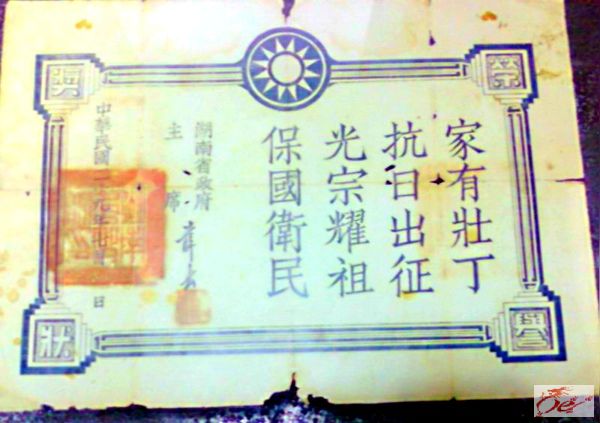 榮譽
家有壯丁
抗日出征
光宗耀祖
保國衛民
湖南省政府
主席 薛岳
中華民國二十九年 月 日
獎狀